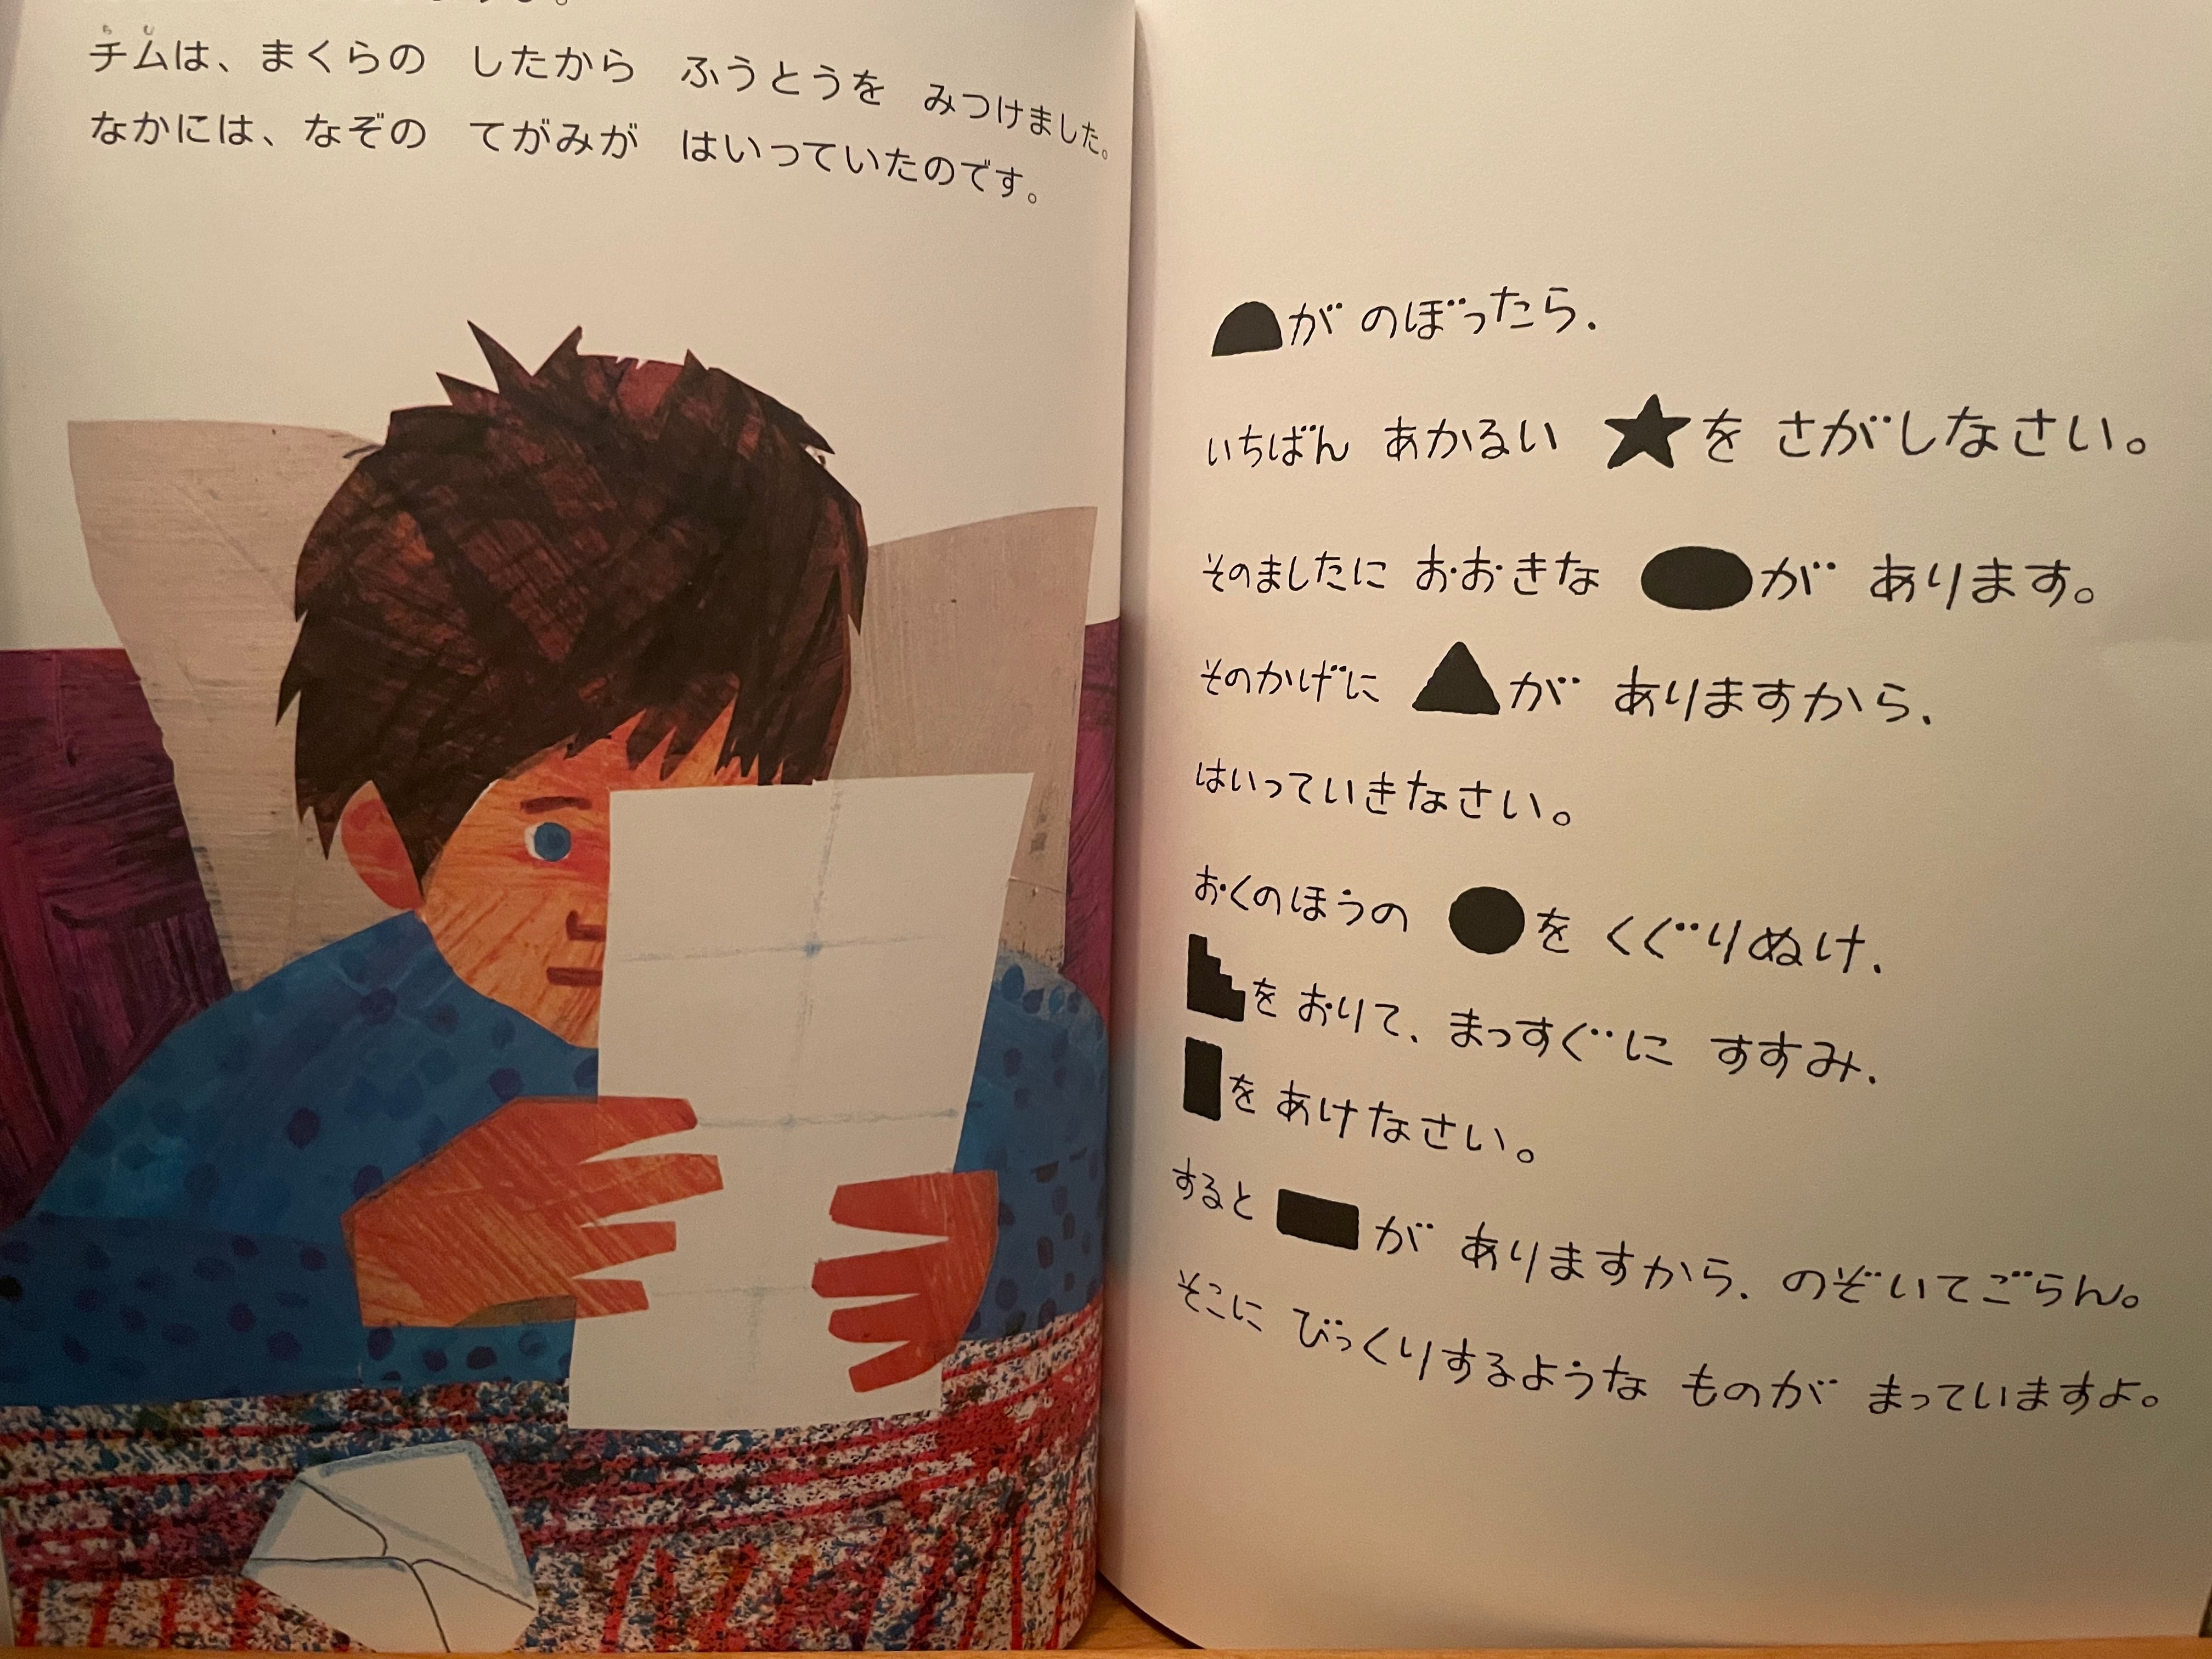 チムは、まくらの したから ふうとうを みつけました。
なかには、なぞの てがみが はいっていたのです。
が のぼったら、
いちばん あかるい ★を さがしなさい。
そのましたに おおきな が あります。
そのかげに ▲が ありますから、
はいっていきなさい。
おくのほうの ●を くぐりぬけ、
を おりて、まっすぐに すすみ、
を あけなさい。
すると が ありますから、のぞいてごらん。
そこに びっくりするような ものが まっていますよ。